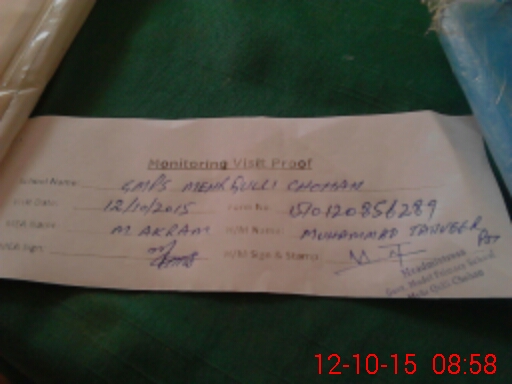 Monitoring Visit Proof
School Name: GMPS MEHR QULLI CHOHAN
Visit Date: 12/10/2015 Form No:
Name: M AKRAM H/M Name: MUHAMMAD TANVEER
Sign: H/M Sign & Stamp:
Headmistress
Govt. Model Primary School
Mehr Qulli Chohan
12-10-15 08:58